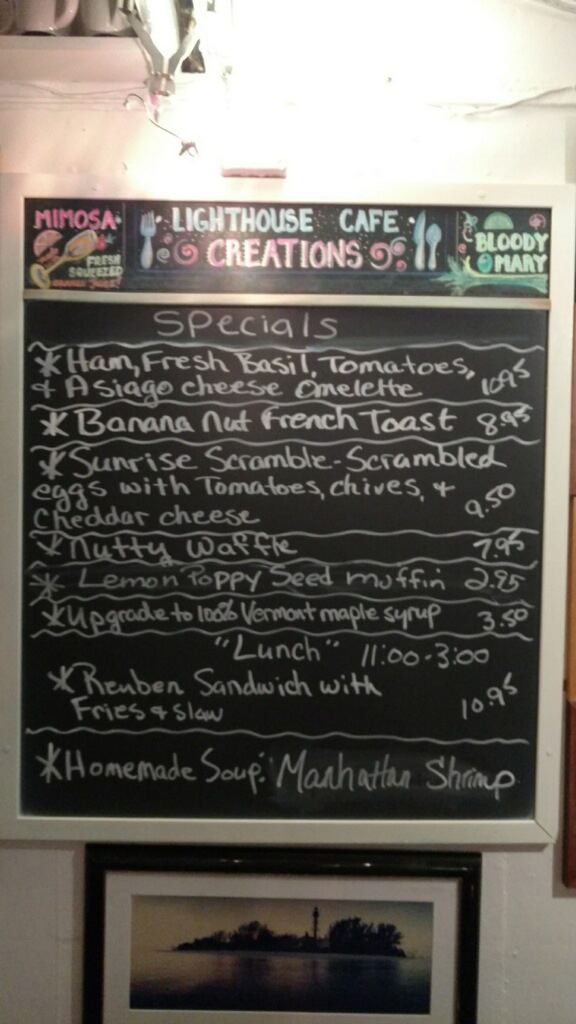 MIMOSA
FRESH
SQUEEZED
ORANGE JUICE!
LIGHTHOUSE CAFE
CREATIONS
BLOODY
MARY
Specials
* Ham, Fresh Basil, Tomatoes,
+ Asiago cheese Omelette 10.95
* Banana Nut French Toast 8.95
* Sunrise Scramble - Scrambled
eggs with Tomatoes, chives, +
Cheddar cheese 9.50
* Nutty Waffle 7.95
* Lemon Poppy Seed muffin 2.95
* Upgrade to 100% Vermont maple syrup 3.50
"Lunch" 11:00-3:00
* Reuben Sandwich with
Fries + Slaw 10.95
* Homemade Soup: Manhattan Shrimp